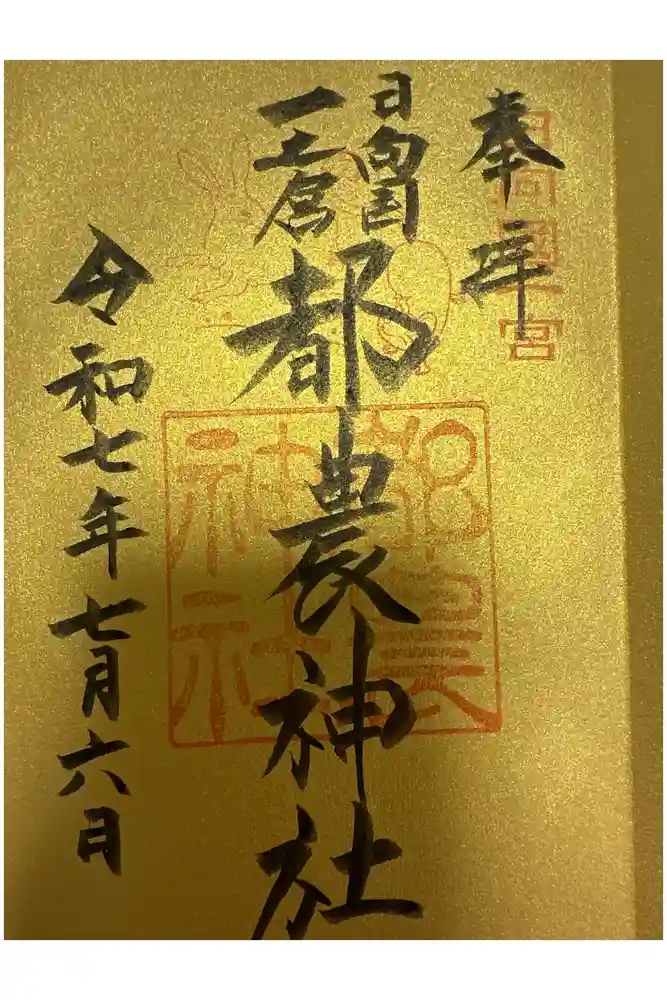 奉拝
日向國一宮
日向国
一之宮
都農神社
都農神社
令和七年七月六日